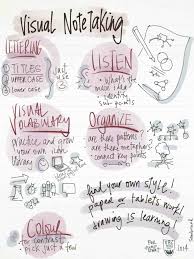 Visual NoteTaking
LETTERING
① TITLES
② UPPER CASE
③ lower case
just use
LISTEN
• What's the
main idea
• identify
sub points
VISUAL
VOCABULARY
practice and
grow your
own icon
library
ORGANIZE
are there patterns
are there metaphors
connect key points
Colour
for contrast
pick just a few
find your own style!
paper or tablets work!
drawing is learning!
UBC